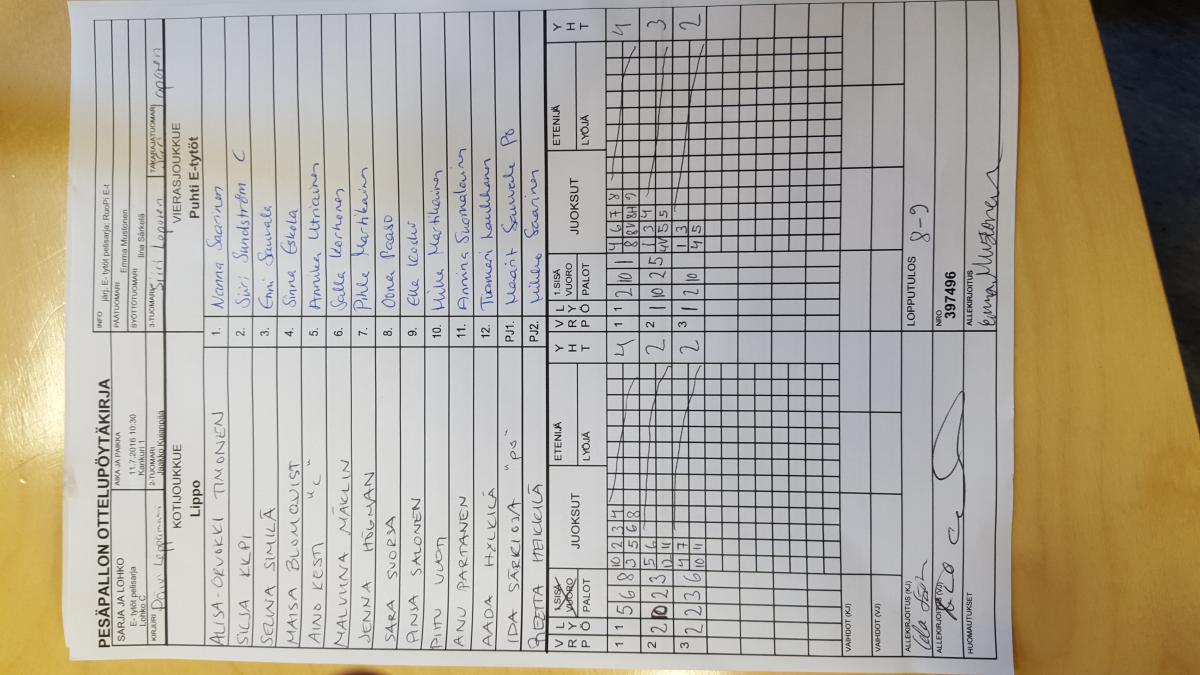 PESÄPALLON OTTELUPÖYTÄKIRJA
SARJA JA LOHKO
E- tytöt pelisarja
Lohko C
AIKA JA PAIKKA
11.7.2016 10:30
Kankuri 1
INFO järj. E- tytöt pelisarja: RuoPi E-t
PÄÄTUOMARI Emma Mustonen
SYÖTTÖTUOMARI Iina Särkelä
KIRJURI Päivi Leppämäki
2-TUOMARI Jaakko Kujanpää
3-TUOMARI Siiri Leponen
TAKARAJATUOMARI
KOTIJOUKKUE
Lippo
VIERASJOUKKUE
Puhti E-tytöt
ALISA-ORVOKKI TIMONEN 1. Nanna Saarinen
SILJA KKPI 2. Siiri Sundström C
SELINA SIMILÄ 3. Enni Sauvala
MAISA BLOMQVIST 4. Sinna Eskola
AINO KESTI "C" 5. Annika Utriainen
MALVIINA MÄKLIN 6. Salla Korhonen
JENNA HÖGMAN 7. Pihle Martikainen
SARA SUORSA 8. Oona Paaso
PINJA SALONEN 9. Ella Koski
PIITU VUOTI 10. Hilka Martikainen
ANU PARTANEN 11. Anniina Suomalainen
AADA HYLKILÄ 12. Tuomari Laukkanen
IDA SÄRKIOJA "PJ" PJ1. Maarit Sauvala PJ
REETTA HEIKKILÄ PJ2. Mikko Saarinen
V R P L Y Ö 1.SISÄ VUORO PALOT JUOKSUT ETENIJÄ LYÖJÄ Y H T V R P L Y Ö 1.SISÄ VUORO PALOT JUOKSUT ETENIJÄ LYÖJÄ Y H T
1 1 5 6 8 10 2 3 4 4 1 1 2 10 1 4 6 7 8 4
3 5 6 8
2 2 10 2 3 5 6 2 2 1 10 2 5 1 3 4 3
12 11
3 2 2 3 6 4 7 2 3 1 2 10 1 3 2
10 11 4 5
VAIHDOT (KJ)
VAIHDOT (VJ)
ALLEKIRJOITUS (KJ)
LOPPUTULOS 8-9
ALLEKIRJOITUS (VJ)
NRO
397496
HUOMAUTUKSET
ALLEKIRJOITUS
Emma Mustonen